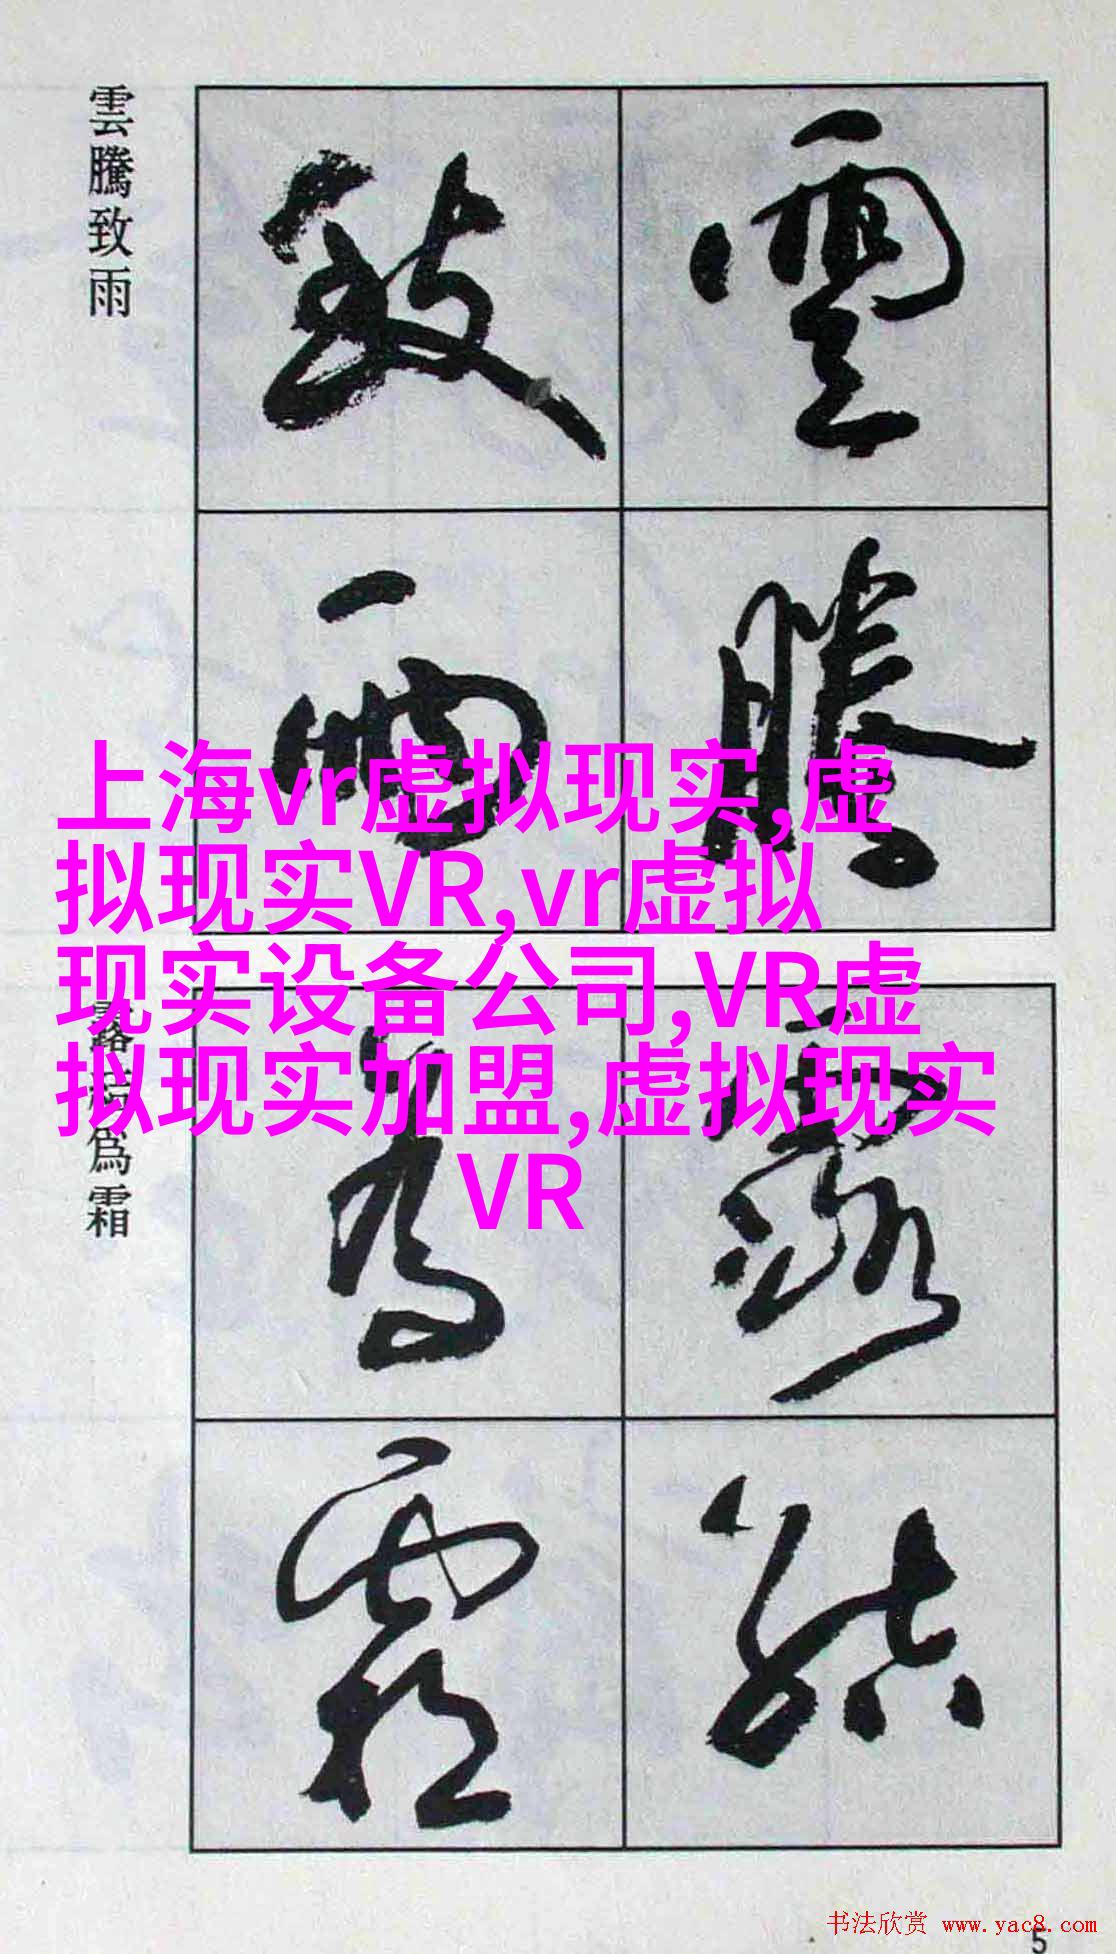 雲騰致雨
雲騰
致雨
上海vr虚拟现实,虚
拟现实VR,vr虚拟
现实设备公司,VR虚
拟现实加盟,虚拟现实
VR
露結為霜
露結
為霜
书法欣赏 www.yac8.com
5